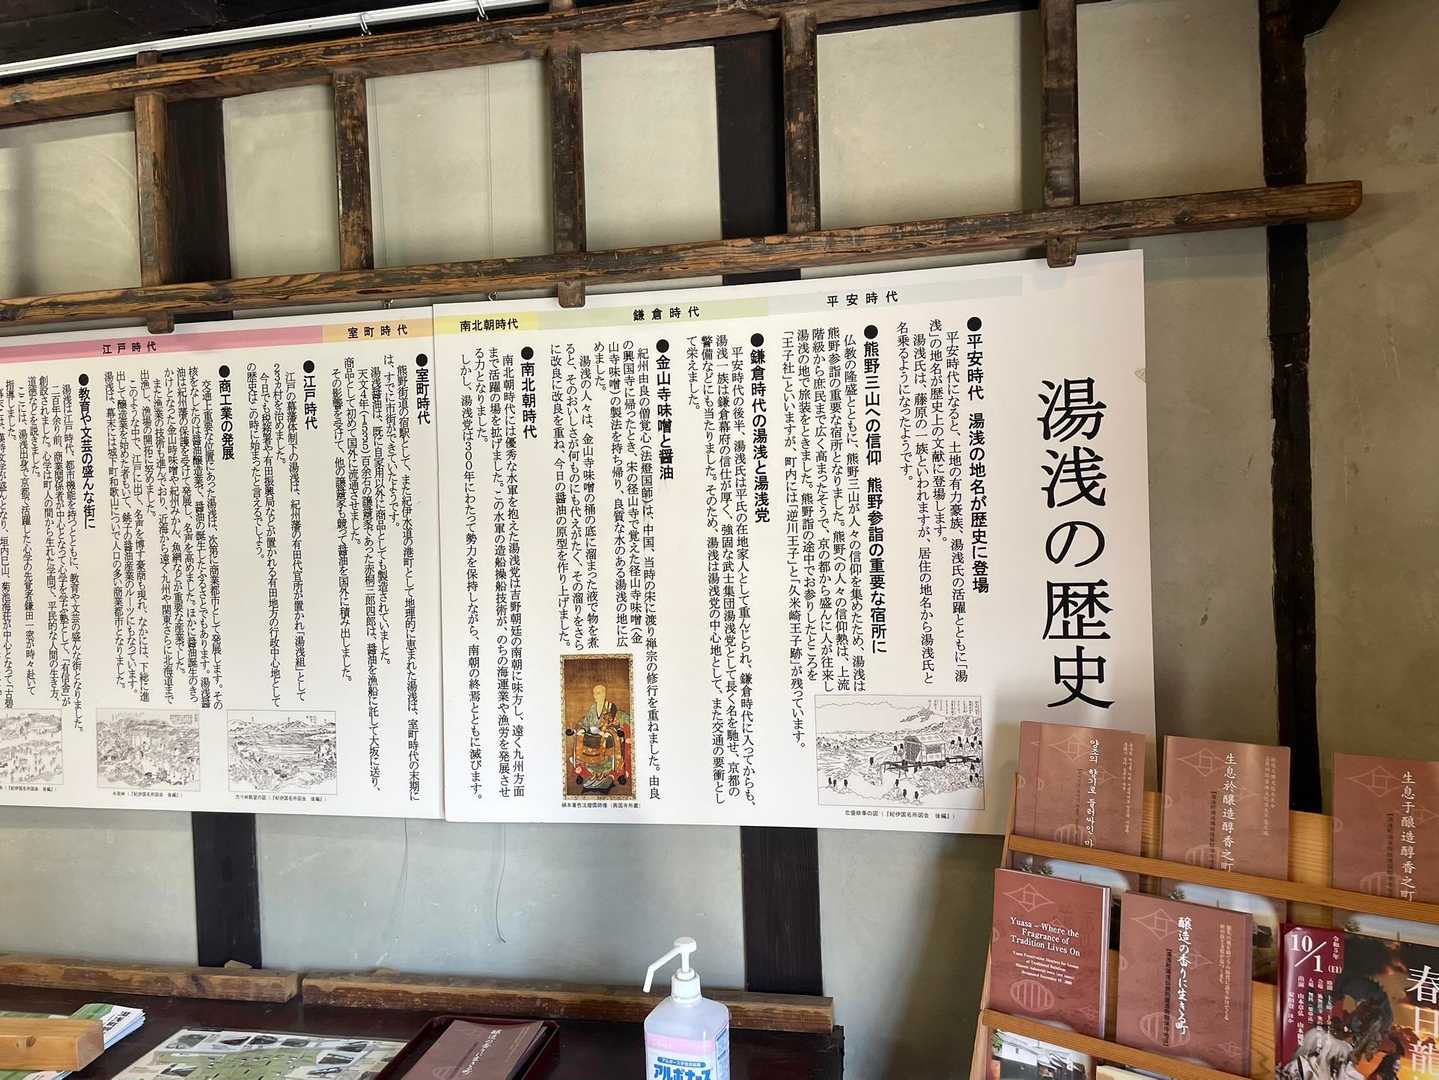 湯浅の歴史
平安時代
●平安時代 湯浅の地名が歴史に登場
平安時代になると、土地の有力豪族、湯浅氏の活躍とともに「湯
浅」の地名が歴史上の文献に登場します。
湯浅氏は、藤原の一族といわれますが、居住の地名から湯浅氏と
名乗るようになったようです。
●熊野三山への信仰 熊野参詣の重要な宿所に
仏教の隆盛とともに、熊野三山が人々の信仰を集めたため、湯浅は
熊野参詣の重要な宿所となりました。熊野への人々の信仰熱は、上流
階級から庶民まで広く高まったそうで、京の都から盛んに人が往来し
湯浅の地で旅装をときました。熊野詣の途中でお参りしたところを
「王子社」といいますが、町内には「逆川王子」と「久米崎王子跡」が残っています。
鎌倉時代
●鎌倉時代の湯浅と湯浅党
平安時代の後半、湯浅氏は平氏の在地家人として重んじられ、鎌倉時代に入ってからも、
湯浅一族は鎌倉幕府の信任が厚く、強固な武士集団湯浅党として長く名を馳せ、京都の
警備などにも当たりました。そのため、湯浅は湯浅党の中心地として、また交通の要衝とし
て栄えました。
●金山寺味噌と醤油
紀州由良の僧覚心(法燈国師)は、中国、当時の宋に渡り禅宗の修行を重ねました。由良
の興国寺に帰ったとき、宋の径山寺で覚えた径山寺味噌(金
山寺味噌)の製法を持ち帰り、良質な水のある湯浅の地に広
めました。
湯浅の人々は、金山寺味噌の桶の底に溜まった液で物を煮
ると、そのおいしさが何ものにも代えがたく、その溜りをさら
に改良に改良を重ね、今日の醤油の原型を作り上げました。
南北朝時代
●南北朝時代
南北朝時代には優秀な水軍を抱えた湯浅党は吉野朝廷の南朝に味方し、遠く九州方面
まで活躍の場を拡げました。この水軍の造船操船技術が、のちの海運業や漁労を発展させ
る力となりました。
しかし、湯浅党は300年にわたって勢力を保持しながら、南朝の終焉とともに滅びます。
室町時代
●室町時代
熊野街道の宿駅として、また紀伊水道の港町として地理的に恵まれた湯浅は、室町時代の末期に
は、すでに市街ができていたようです。
湯浅醤油は、既に自家用以外に商品としても製造されていました。
天文4年(1535)百余石の醸造家であった赤桐三郎四郎は、醤油を漁船に託して大坂に送り、
商品として初めて国外に流通させました。
その影響を受けて、他の醸造家も競って醤油を国外に積み出しました。
江戸時代
●江戸時代
江戸の幕藩体制下の湯浅は、紀州藩の有田代官所が置かれ「湯浅組」として
23カ村を治めました。
今日でも税務署や有田振興局などが置かれる有田地方の行政中心地として
の歴史はこの時に始まったと言えるでしょう。
●商工業の発展
交通上重要な位置にあった湯浅は、次第に商業都市として発展します。その
核をなしたのは醤油醸造業で、醤油の誕生したふるさとでもあります。湯浅醤
油は紀州藩の保護を受けて発展し、名声を高めました。ほかに醤油誕生のきっ
かけとなった金山寺味噌や紀州みかん、魚網などが重要な産業でした。
また漁業の技術も進んでおり、近海から遠く九州や関東さらに北海道まで
出漁し、漁場の開拓に努めました。
このような中で、江戸に出て、名声を博す豪商も現れ、なかには、下総に進
出して醸造業を始めた者もいて、銚子の醤油産業のルーツにもなっています。
湯浅は、幕末には城下町和歌山についで人口の多い商業都市となりました。
●教育や文芸の盛んな街に
湯浅は江戸時代、都市機能を持つとともに、教育や文芸の盛んな街となりました。
二百年余り前、商業関係者が中心となって心学を学ぶ塾として、「有信舎」が
創設されました。心学は町人の間から生れた学問で、平民的な人間の生き方、
道徳などを説きました。
ここには、湯浅出身で京都で活躍した心学の先覚者鎌田一窓が時々赴いて
指導しました。
Yuasa – Where the
Fragrance of
Tradition Lives On
醸造の香りに生きる町
生息於醸造醇香之町
生息于酿造醇香之町
令和5年
10/1(日)
春日龍
アルボナース